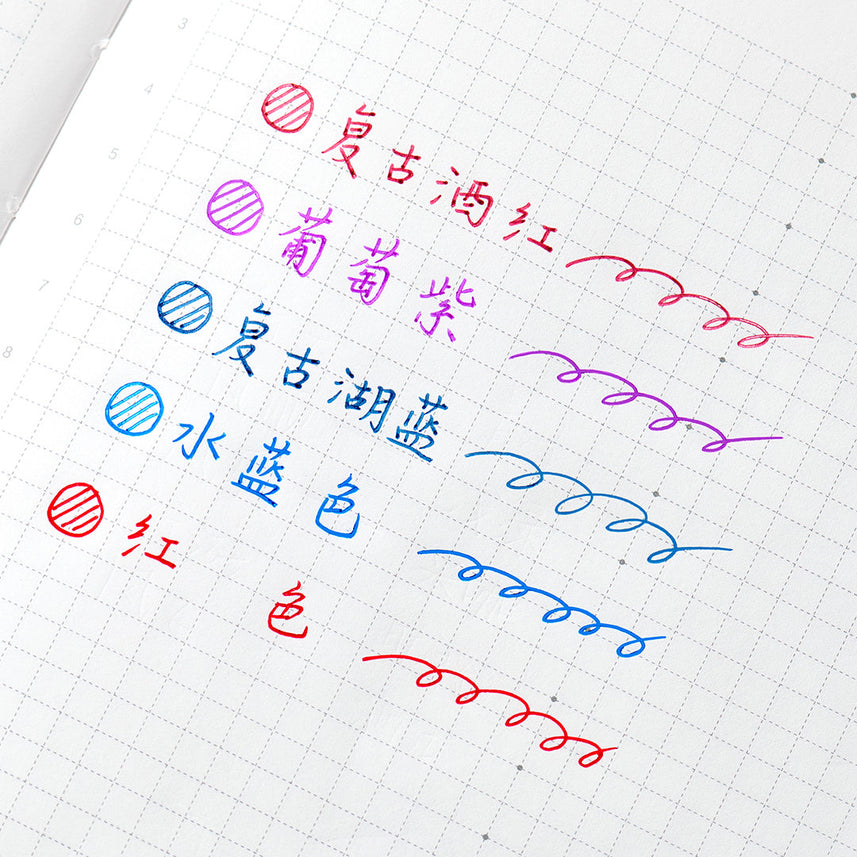 3
4
5
6
7
8
复古酒红
葡萄紫
复古湖蓝
水蓝色
红 色